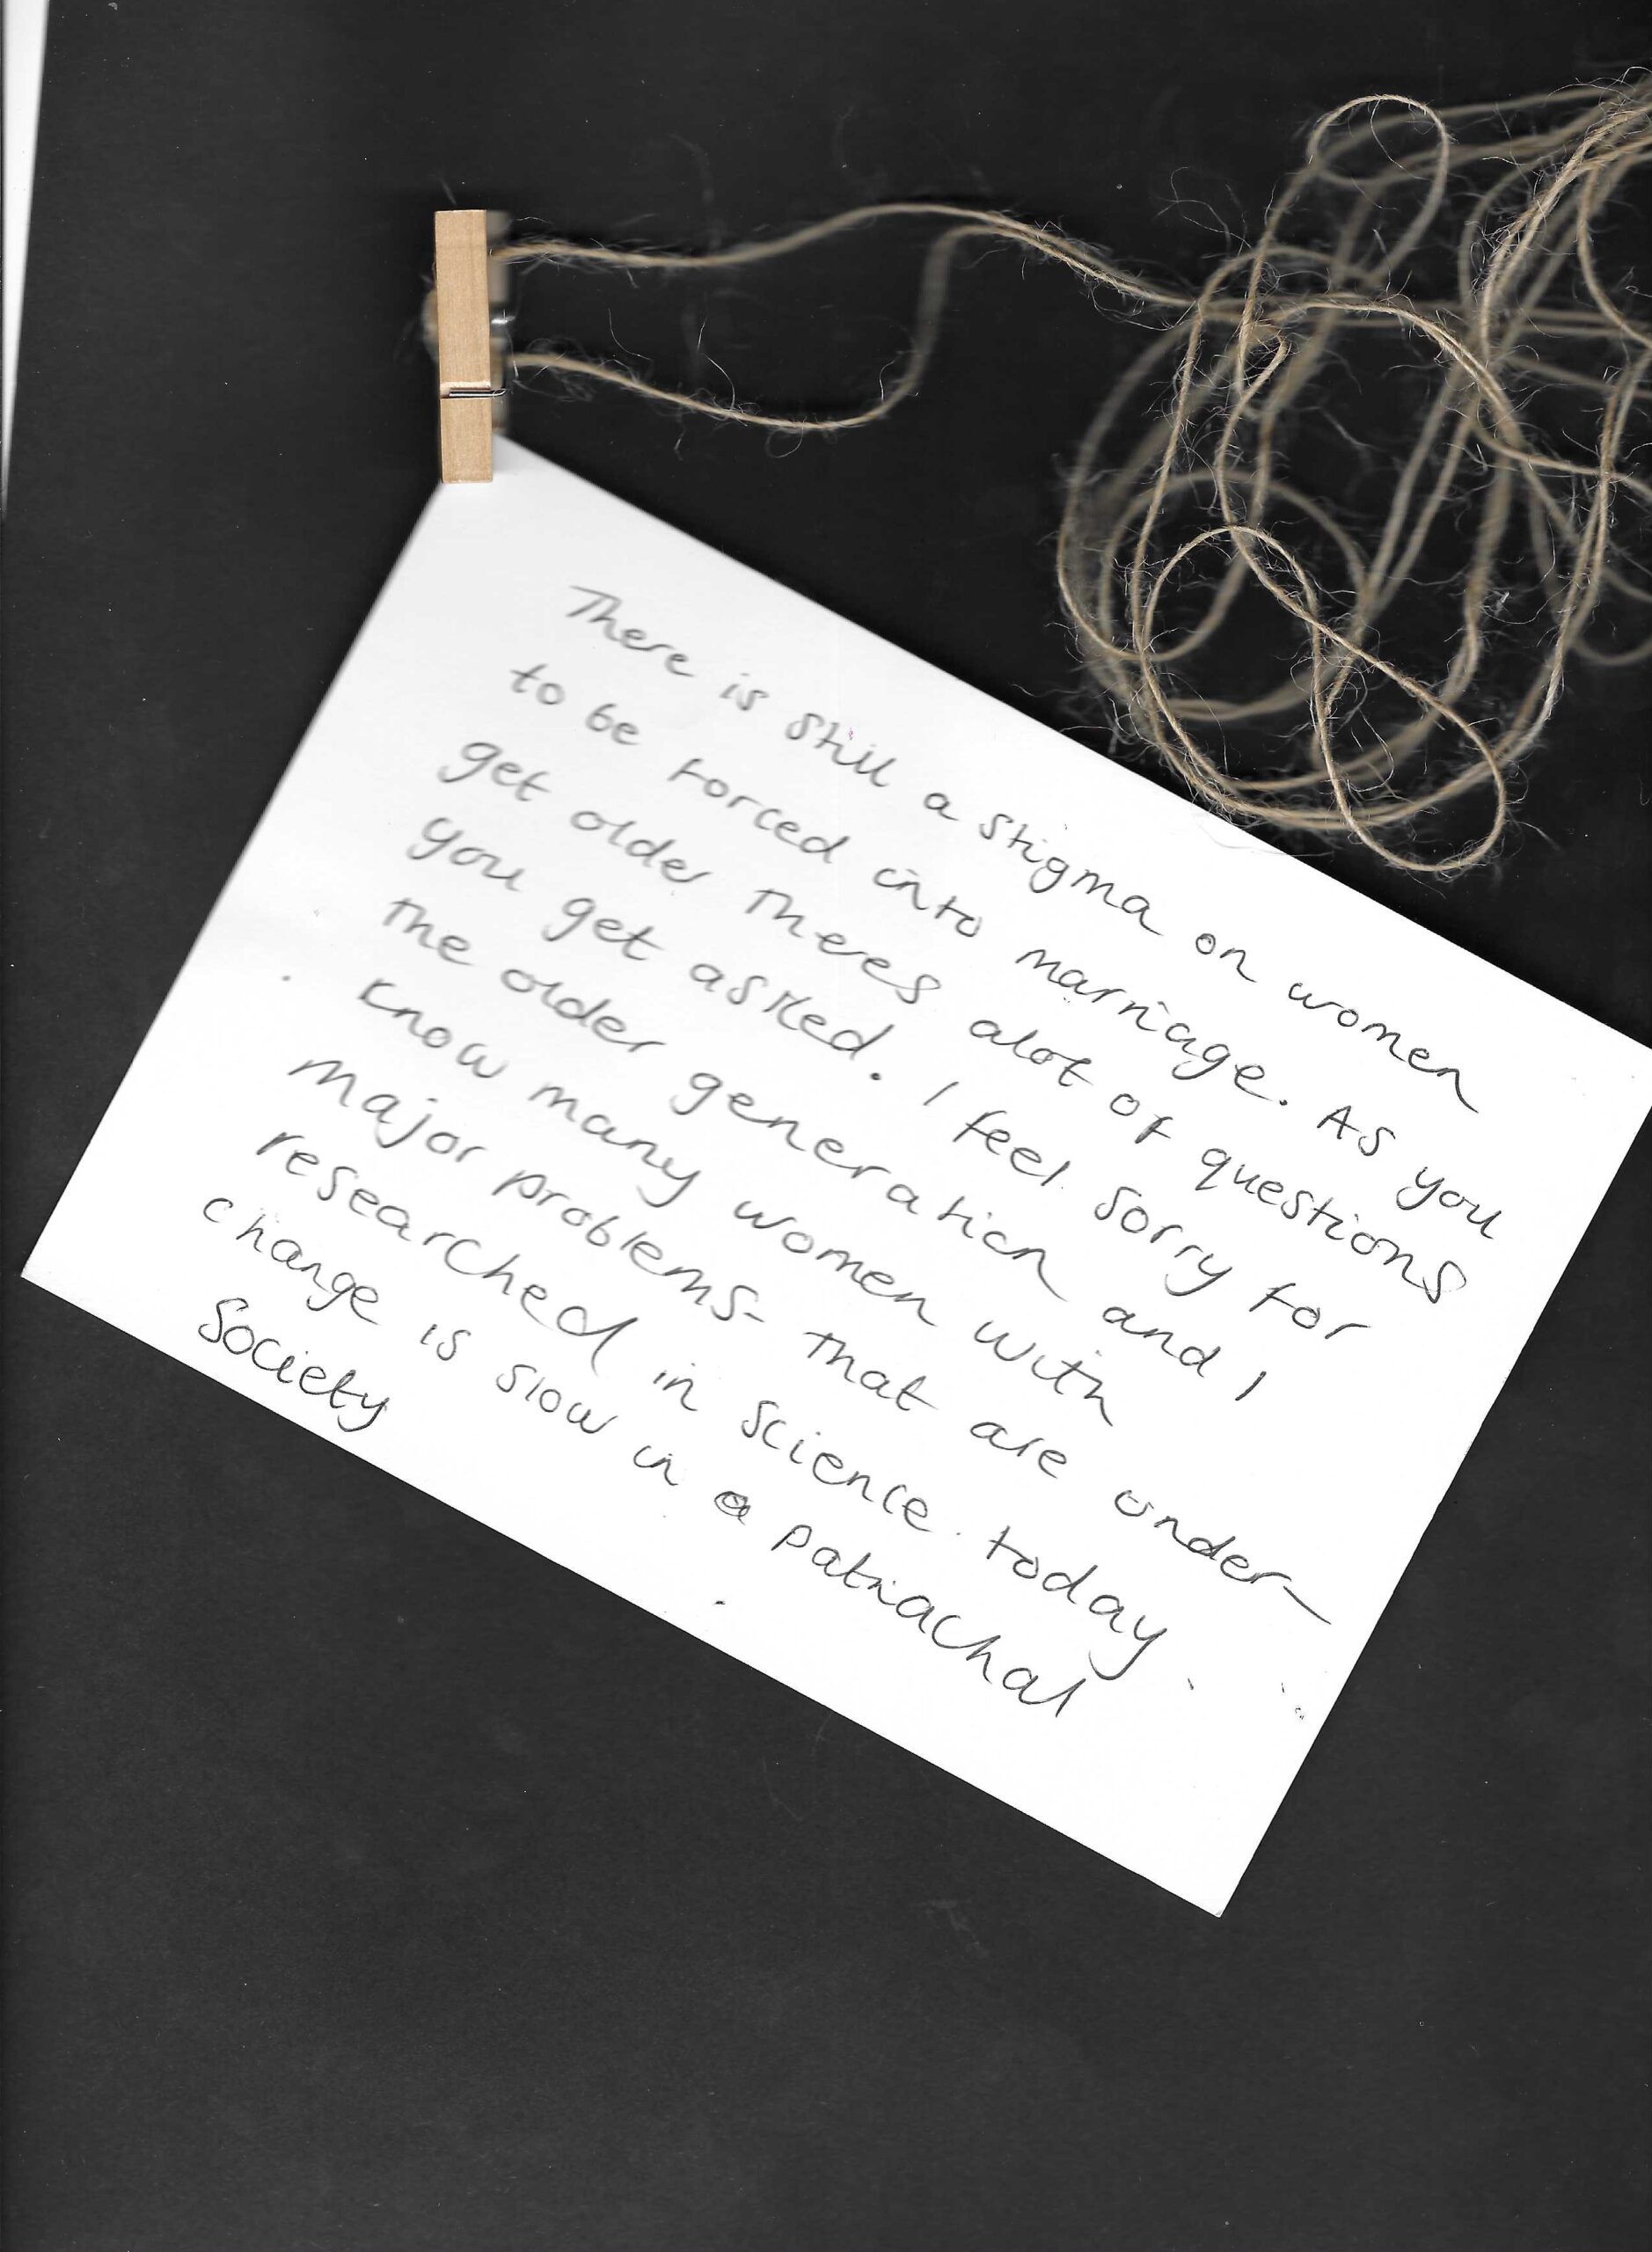 There is still a stigma on women
to be forced into marriage. As you
get older theres alot of questions
you get asked. I feel sorry for
the older generation and I
know many women with
major problems- that are under-
researched in science today.
change is slow in a patriachal
society